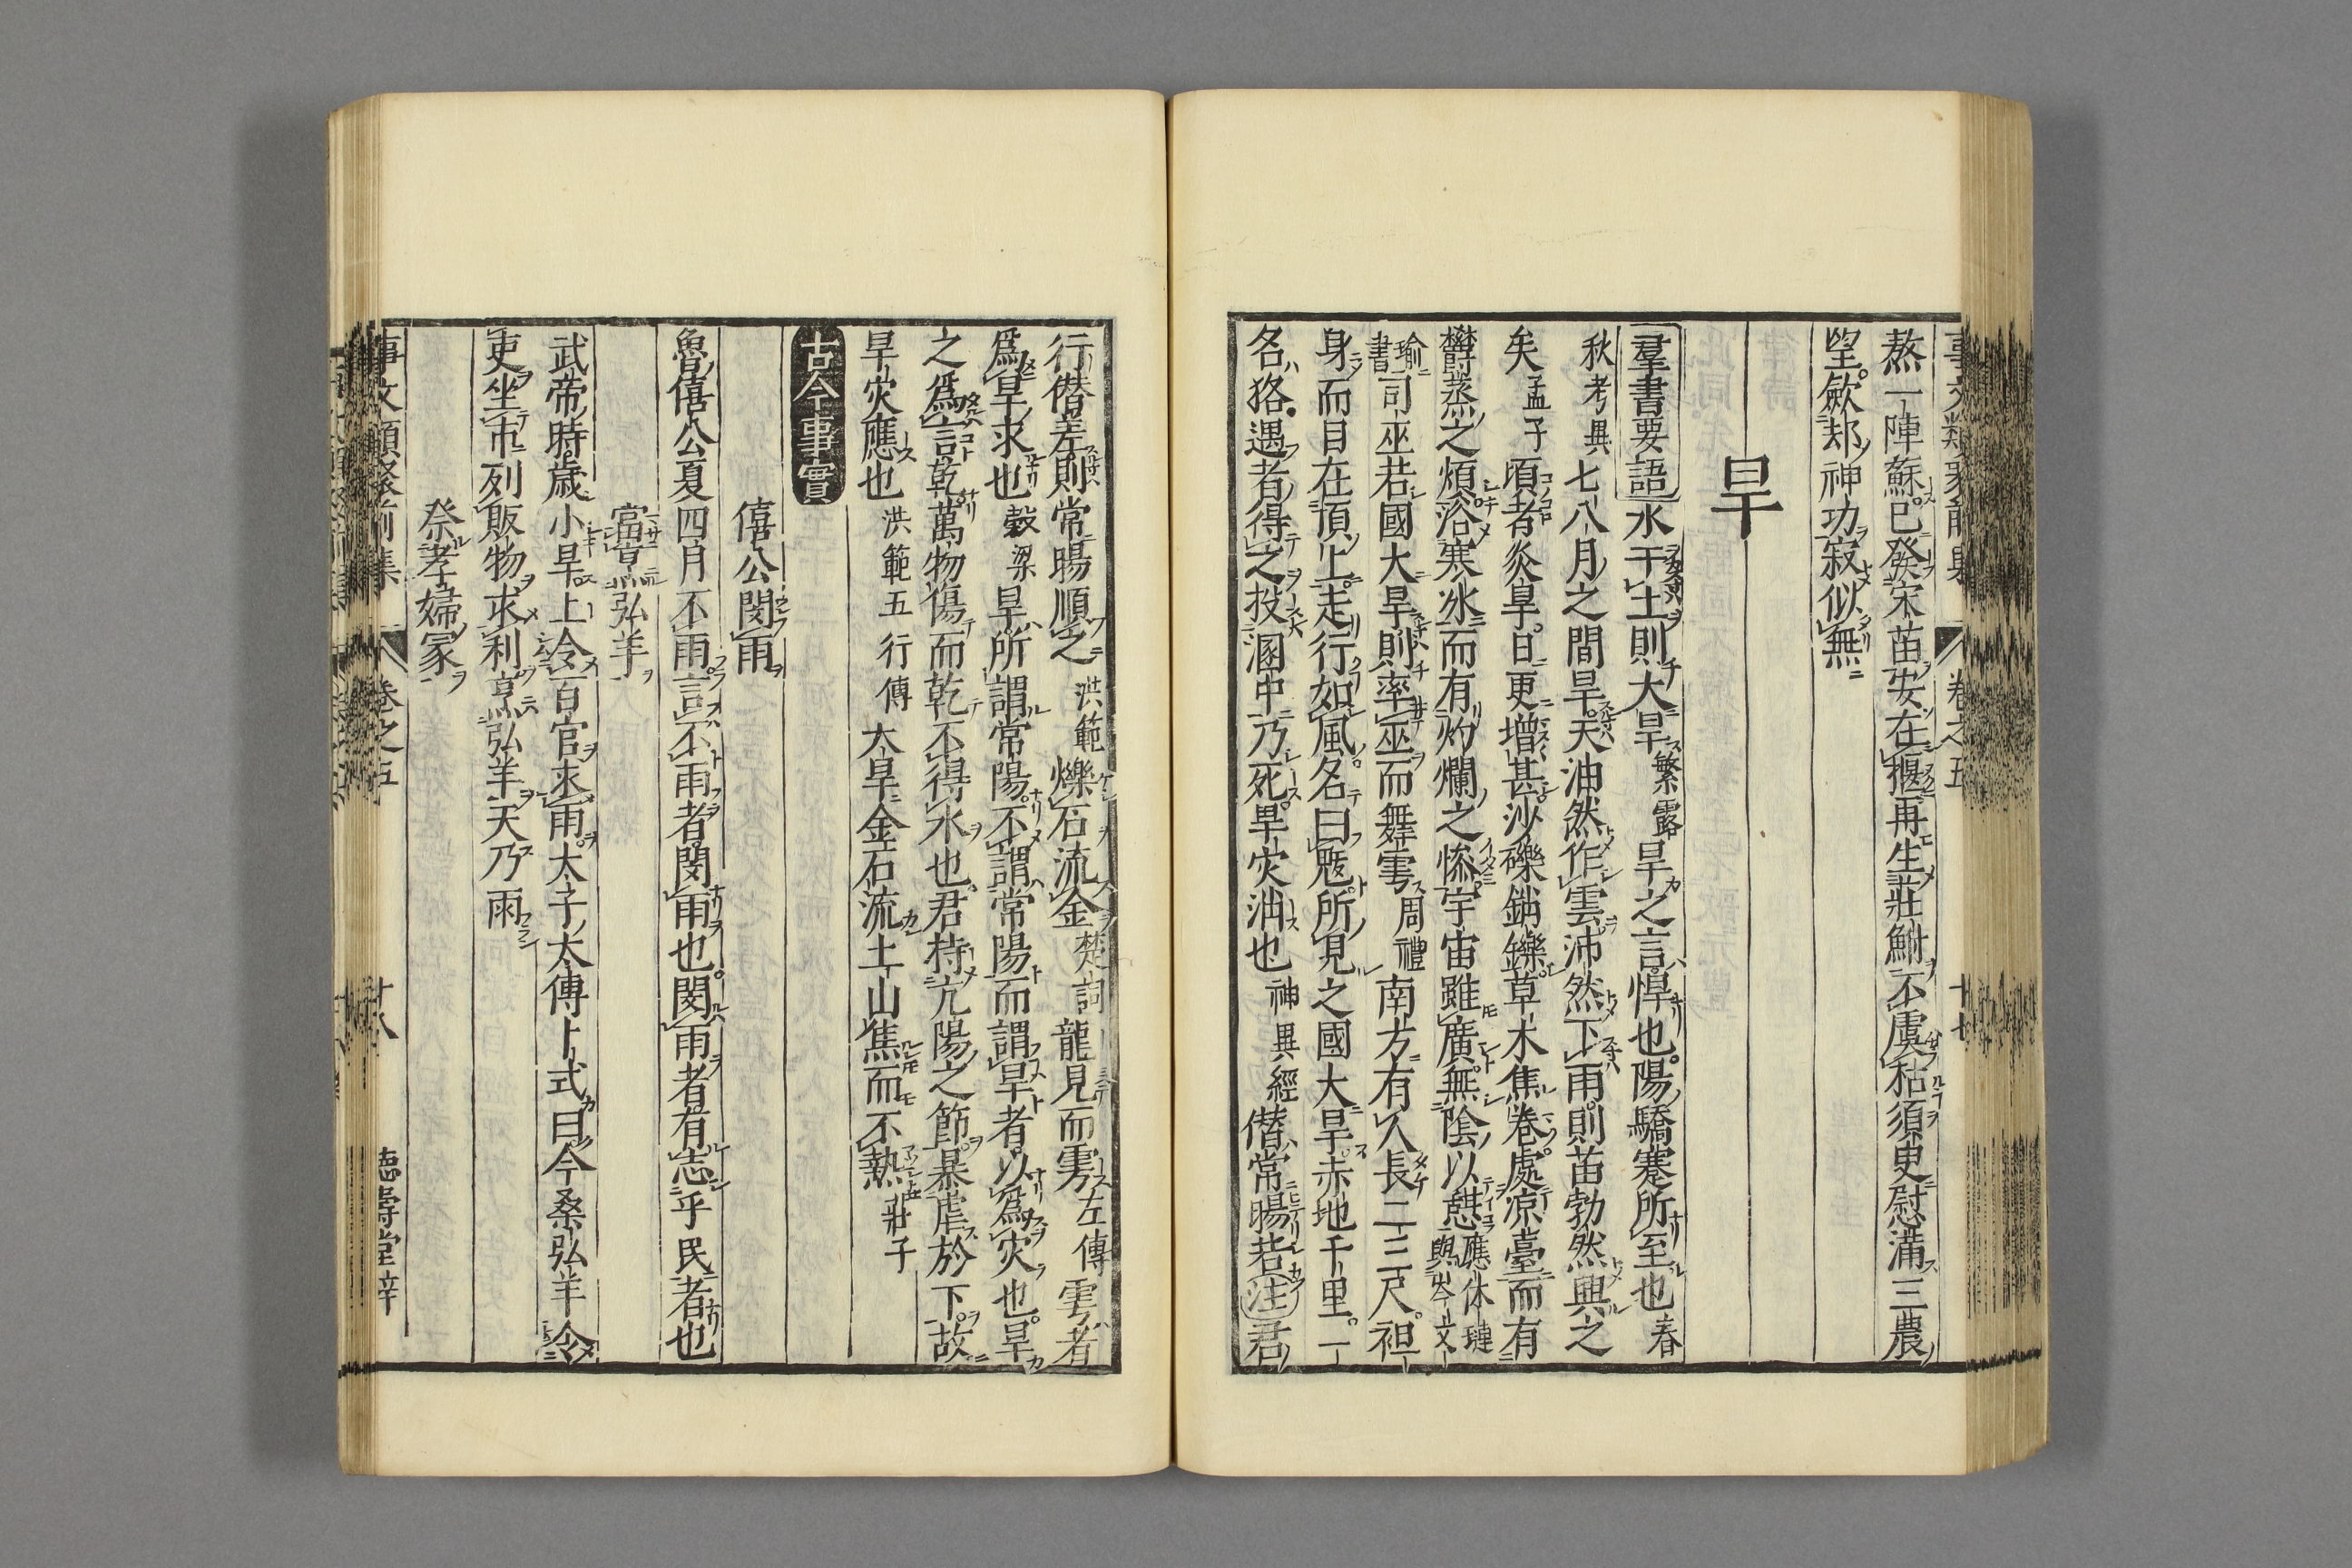 熬一陣蘇已發宋苗安在揠再生莊鮒不虞枯須臾慰滿三農
望歛却神功寂似無
旱
羣書要語水干土則大旱繁露旱之言悍也陽驕蹇所至也春
秋考異七八月之間旱天油然作雲沛然下雨則苗勃然興之
矣孟子頃者炎旱日更增甚沙礫銷鑠草木焦卷處凉臺而有
欝蒸之煩浴寒氷而有灼爛之慘宇宙雖廣無陰以憇應休璉與岑文
瑜書司巫若國大旱則率巫而舞雩周禮南方有人長二三尺袒
身而目在頂上走行如風名曰魃所見之國大旱赤地千里一
名狢遇者得之投溷中乃死旱灾消也神異經僣常暘若注君
行僣差則常暘順之洪範爍石流金楚詞龍見而雩左傳雩者
爲旱求也穀梁旱所謂常陽不謂常陽而謂旱者以爲灾也旱
之爲言乾萬物傷而乾不得水也君持亢陽之節暴虐於下故
旱灾應也洪範五行傳大旱金石流土山焦而不熱莊子
古今事實
僖公閔雨
魯僖公夏四月不雨言不雨者閔雨也閔雨者有志乎民者也
富烹弘羊
武帝時歲小旱上令百官求雨太子太傅卜式曰今桑弘羊令
吏坐市列販物求利烹弘羊天乃雨
祭孝婦冢
事文類聚前集 卷之五 十八 德壽堂梓